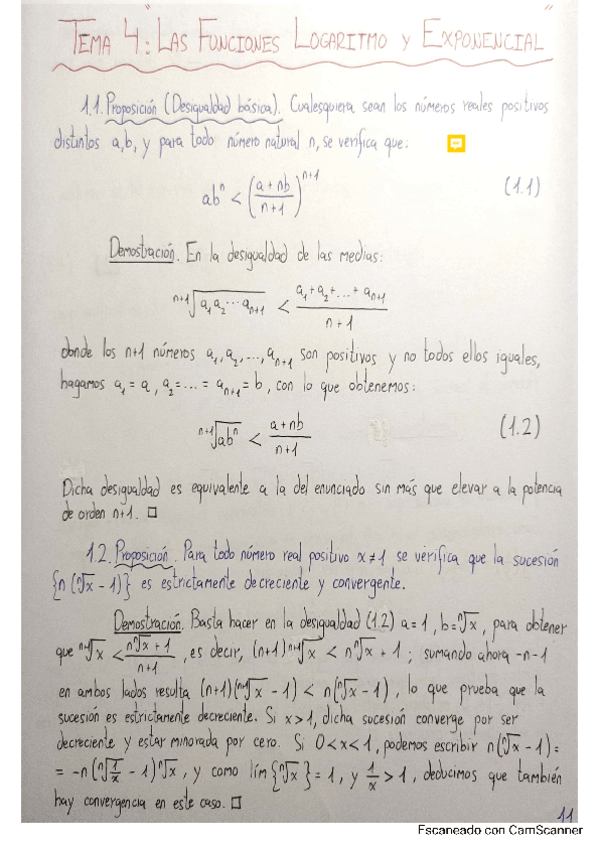 "TEMA 4: LAS FUNCIONES LOGARITMO Y EXPONENCIAL"
1.1. Proposición (Desigualdad básica). Cualesquiera sean los números reales positivos
distintos a, b, y para todo número natural n, se verifica que:
abⁿ < ((a + nb)/(n+1))ⁿ⁺¹ (1.1)
Demostración. En la desigualdad de las medias:
ⁿ⁺¹√(a₁ a₂ ⋯ aₙ₊₁) < (a₁ + a₂ + ... + aₙ₊₁)/(n+1)
donde los n+1 números a₁, a₂, ..., aₙ₊₁ son positivos y no todos ellos iguales,
hagamos a₁ = a, a₂ = ... = aₙ₊₁ = b, con lo que obtenemos:
ⁿ⁺¹√(abⁿ) < (a + nb)/(n+1) (1.2)
Dicha desigualdad es equivalente a la del enunciado sin más que elevar a la potencia
de orden n+1. □
1.2. Proposición. Para todo número real positivo x ≠ 1 se verifica que la sucesión
{n(ⁿ√x - 1)} es estrictamente decreciente y convergente.
Demostración. Basta hacer en la desigualdad (1.2) a = 1, b = ⁿ√x, para obtener
que ⁿ⁺¹√x < (n ⁿ√x + 1)/(n+1), es decir, (n+1) ⁿ⁺¹√x < n ⁿ√x + 1; sumando ahora -n-1
en ambos lados resulta (n+1)(ⁿ⁺¹√x - 1) < n(ⁿ√x - 1), lo que prueba que la
sucesión es estrictamente decreciente. Si x > 1, dicha sucesión converge por ser
decreciente y estar minorada por cero. Si 0 < x < 1, podemos escribir n(ⁿ√x - 1) =
= -n(ⁿ√(1/x) - 1) ⁿ√x, y como lím {ⁿ√x} = 1, y 1/x > 1, deducimos que también
hay convergencia en este caso. □
11
Escaneado con CamScanner